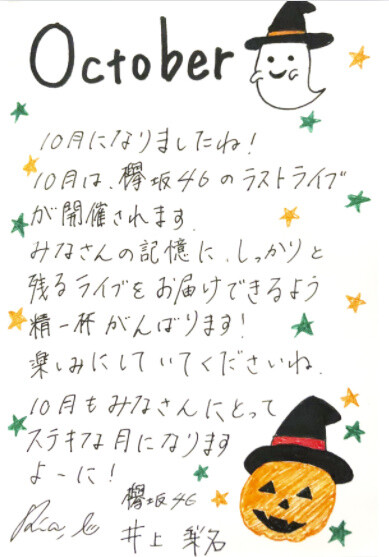 October
10月になりましたね!
10月は、欅坂46のラストライブ
が開催されます。
みなさんの記憶に、しっかりと
残るライブをお届けできるよう
精一杯がんばります!
楽しみにしていてくださいね。
10月もみなさんにとって
ステキな月になります
よーに!
欅坂46
井上 梨名